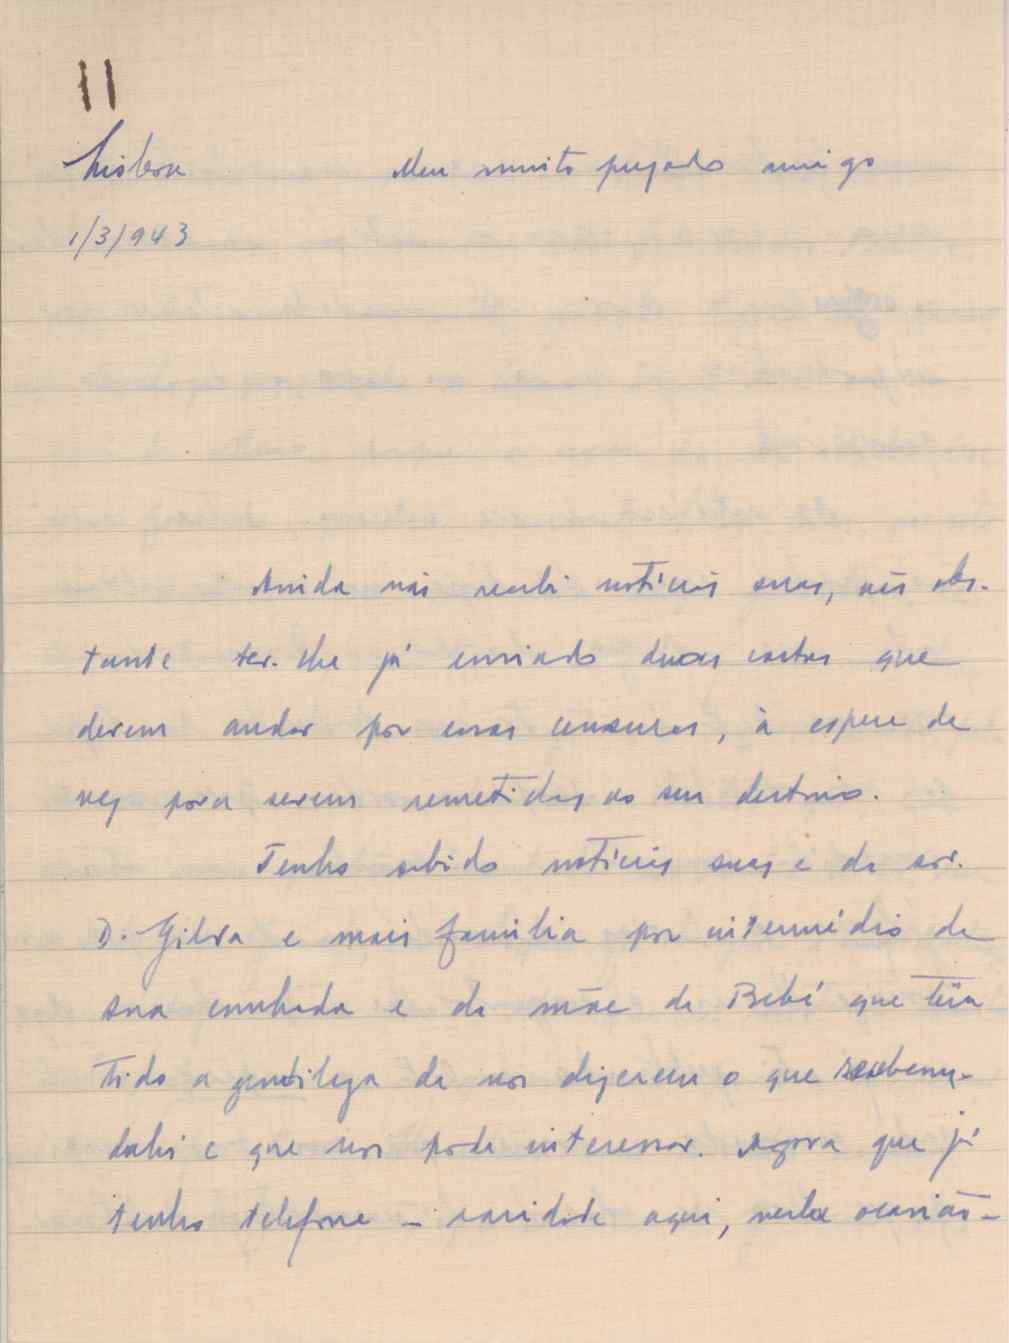 11
Lisboa Meu muito presado amigo
1/3/943
Ainda não recebi notícias suas, não obs-
tante ter-lhe já enviado duas cartas que
devem andar por essas censuras, à espera de
vez para serem remetidas ao seu destino.
Tenho sabido notícias suas e da sr.
D. Gilda e mais familia por intermédio de
sua cunhada e da mãe da Bebé que têm
tido a gentileza de nos dizerem o que recebem
dahi e que nos pode interessar. Agora que já
tenho telefone – raridade aqui, nesta ocasião –